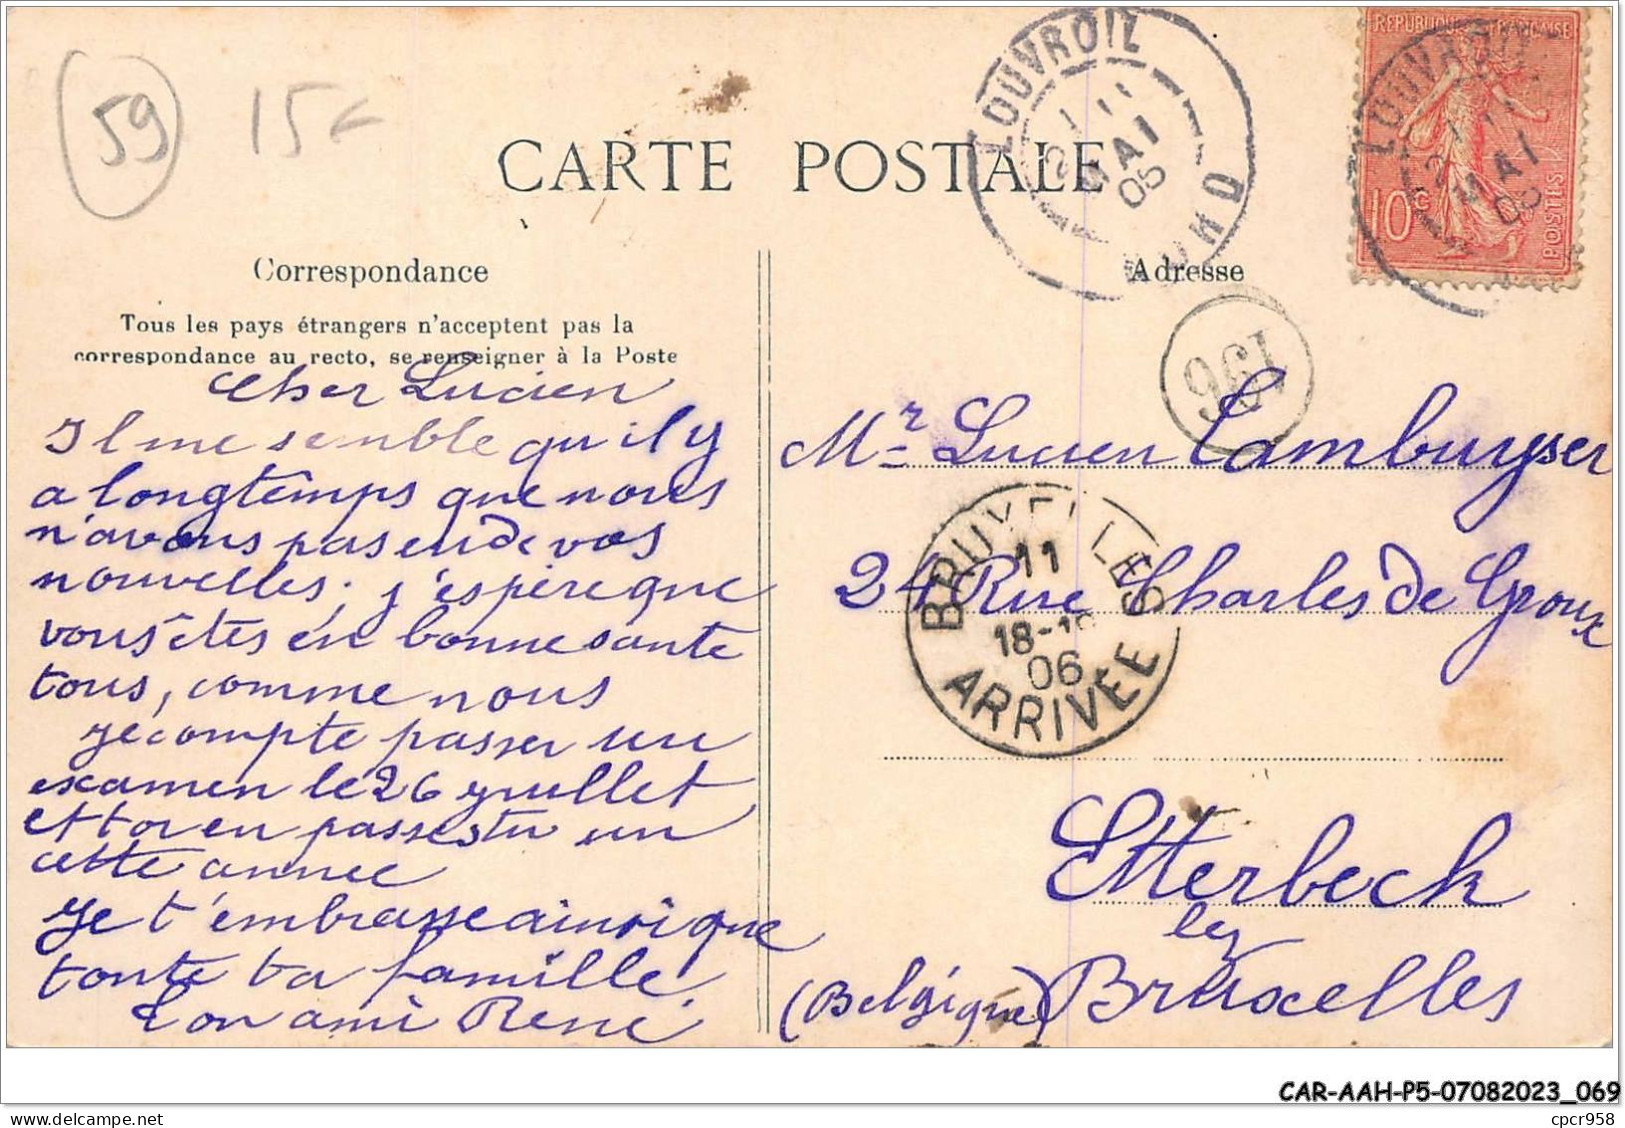 59
15€
CARTE POSTALE
LOUVROIL
MAI
NORD
REPUBLIQUE FRANÇAISE
10c
POSTES
LOUVROIL
MAI
Correspondance
Adresse
Tous les pays étrangers n'acceptent pas la
correspondance au recto, se renseigner à la Poste
196
Cher Lucien
Il me semble qu'il y
a longtemps que nous
n'avons pas eu de vos
nouvelles; j'espère que
vous êtes en bonne sante
tous, comme nous
Je compte passer un
examen le 26 juillet
et toi en passes tu un
cette annee
Je t'embrasse ainsi que
toute ta famille.
Ton ami René
Mr Lucien Cambuyser
24 Rue Charles de Groux
BRUXELLES
11
18-19
06
ARRIVÉE
Etterbeck
lez
(Belgique) Bruxelles
CAR-AAH-P5-07082023_069
cpcr958